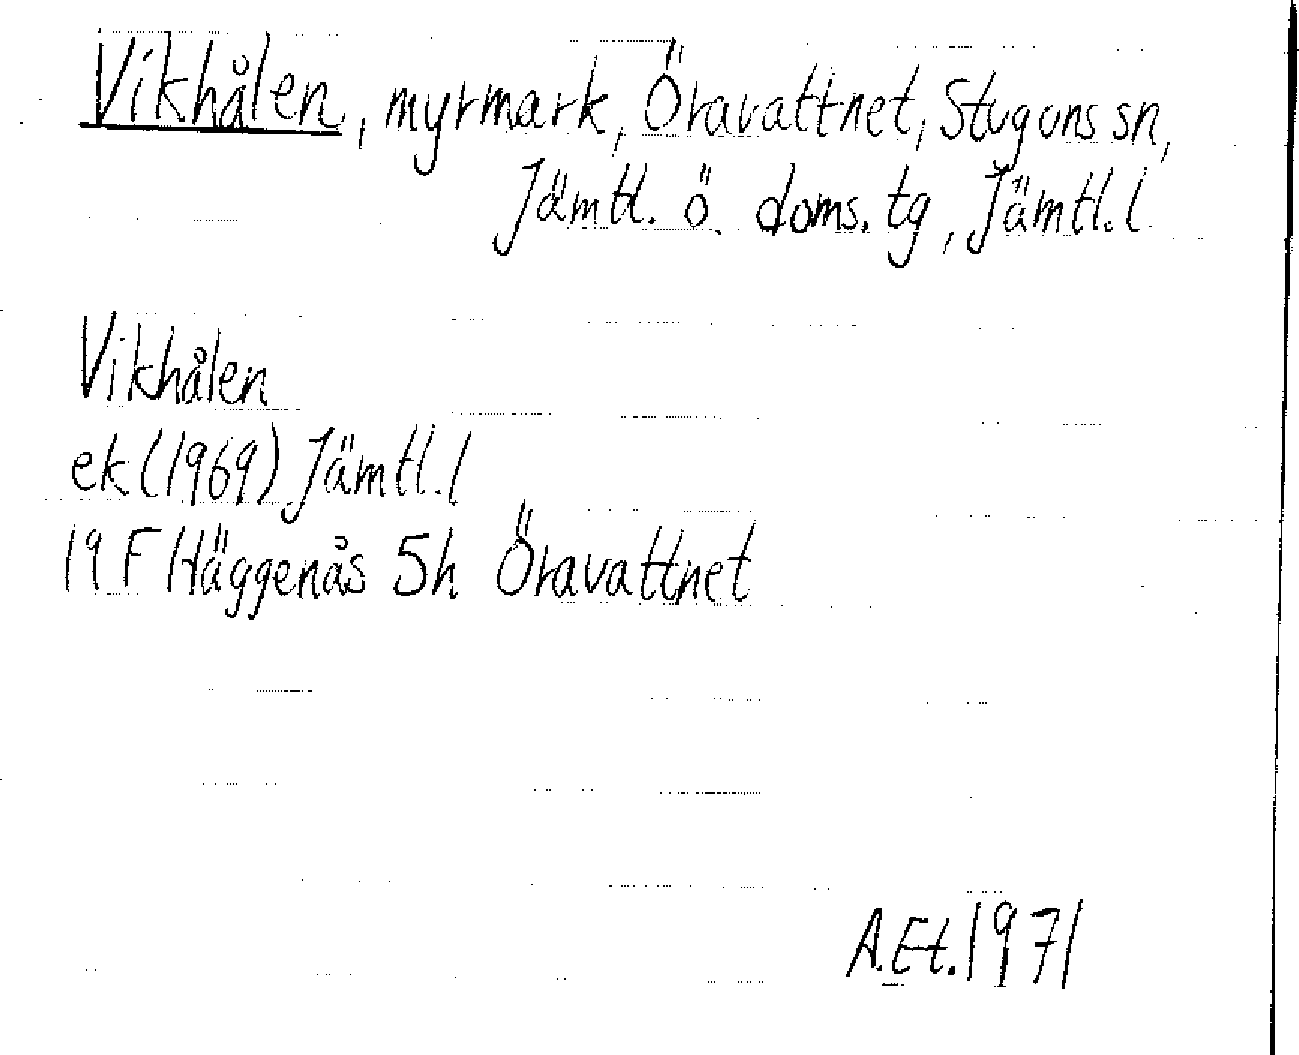 Vikhålen, myrmark, Öravattnet, Stuguns sn,
Jämtl. ö. doms. tg, Jämtl. l
Vikhålen
ek (1969) Jämtl. l
19 F Häggenås 5h Öravattnet
A.Et. 1971